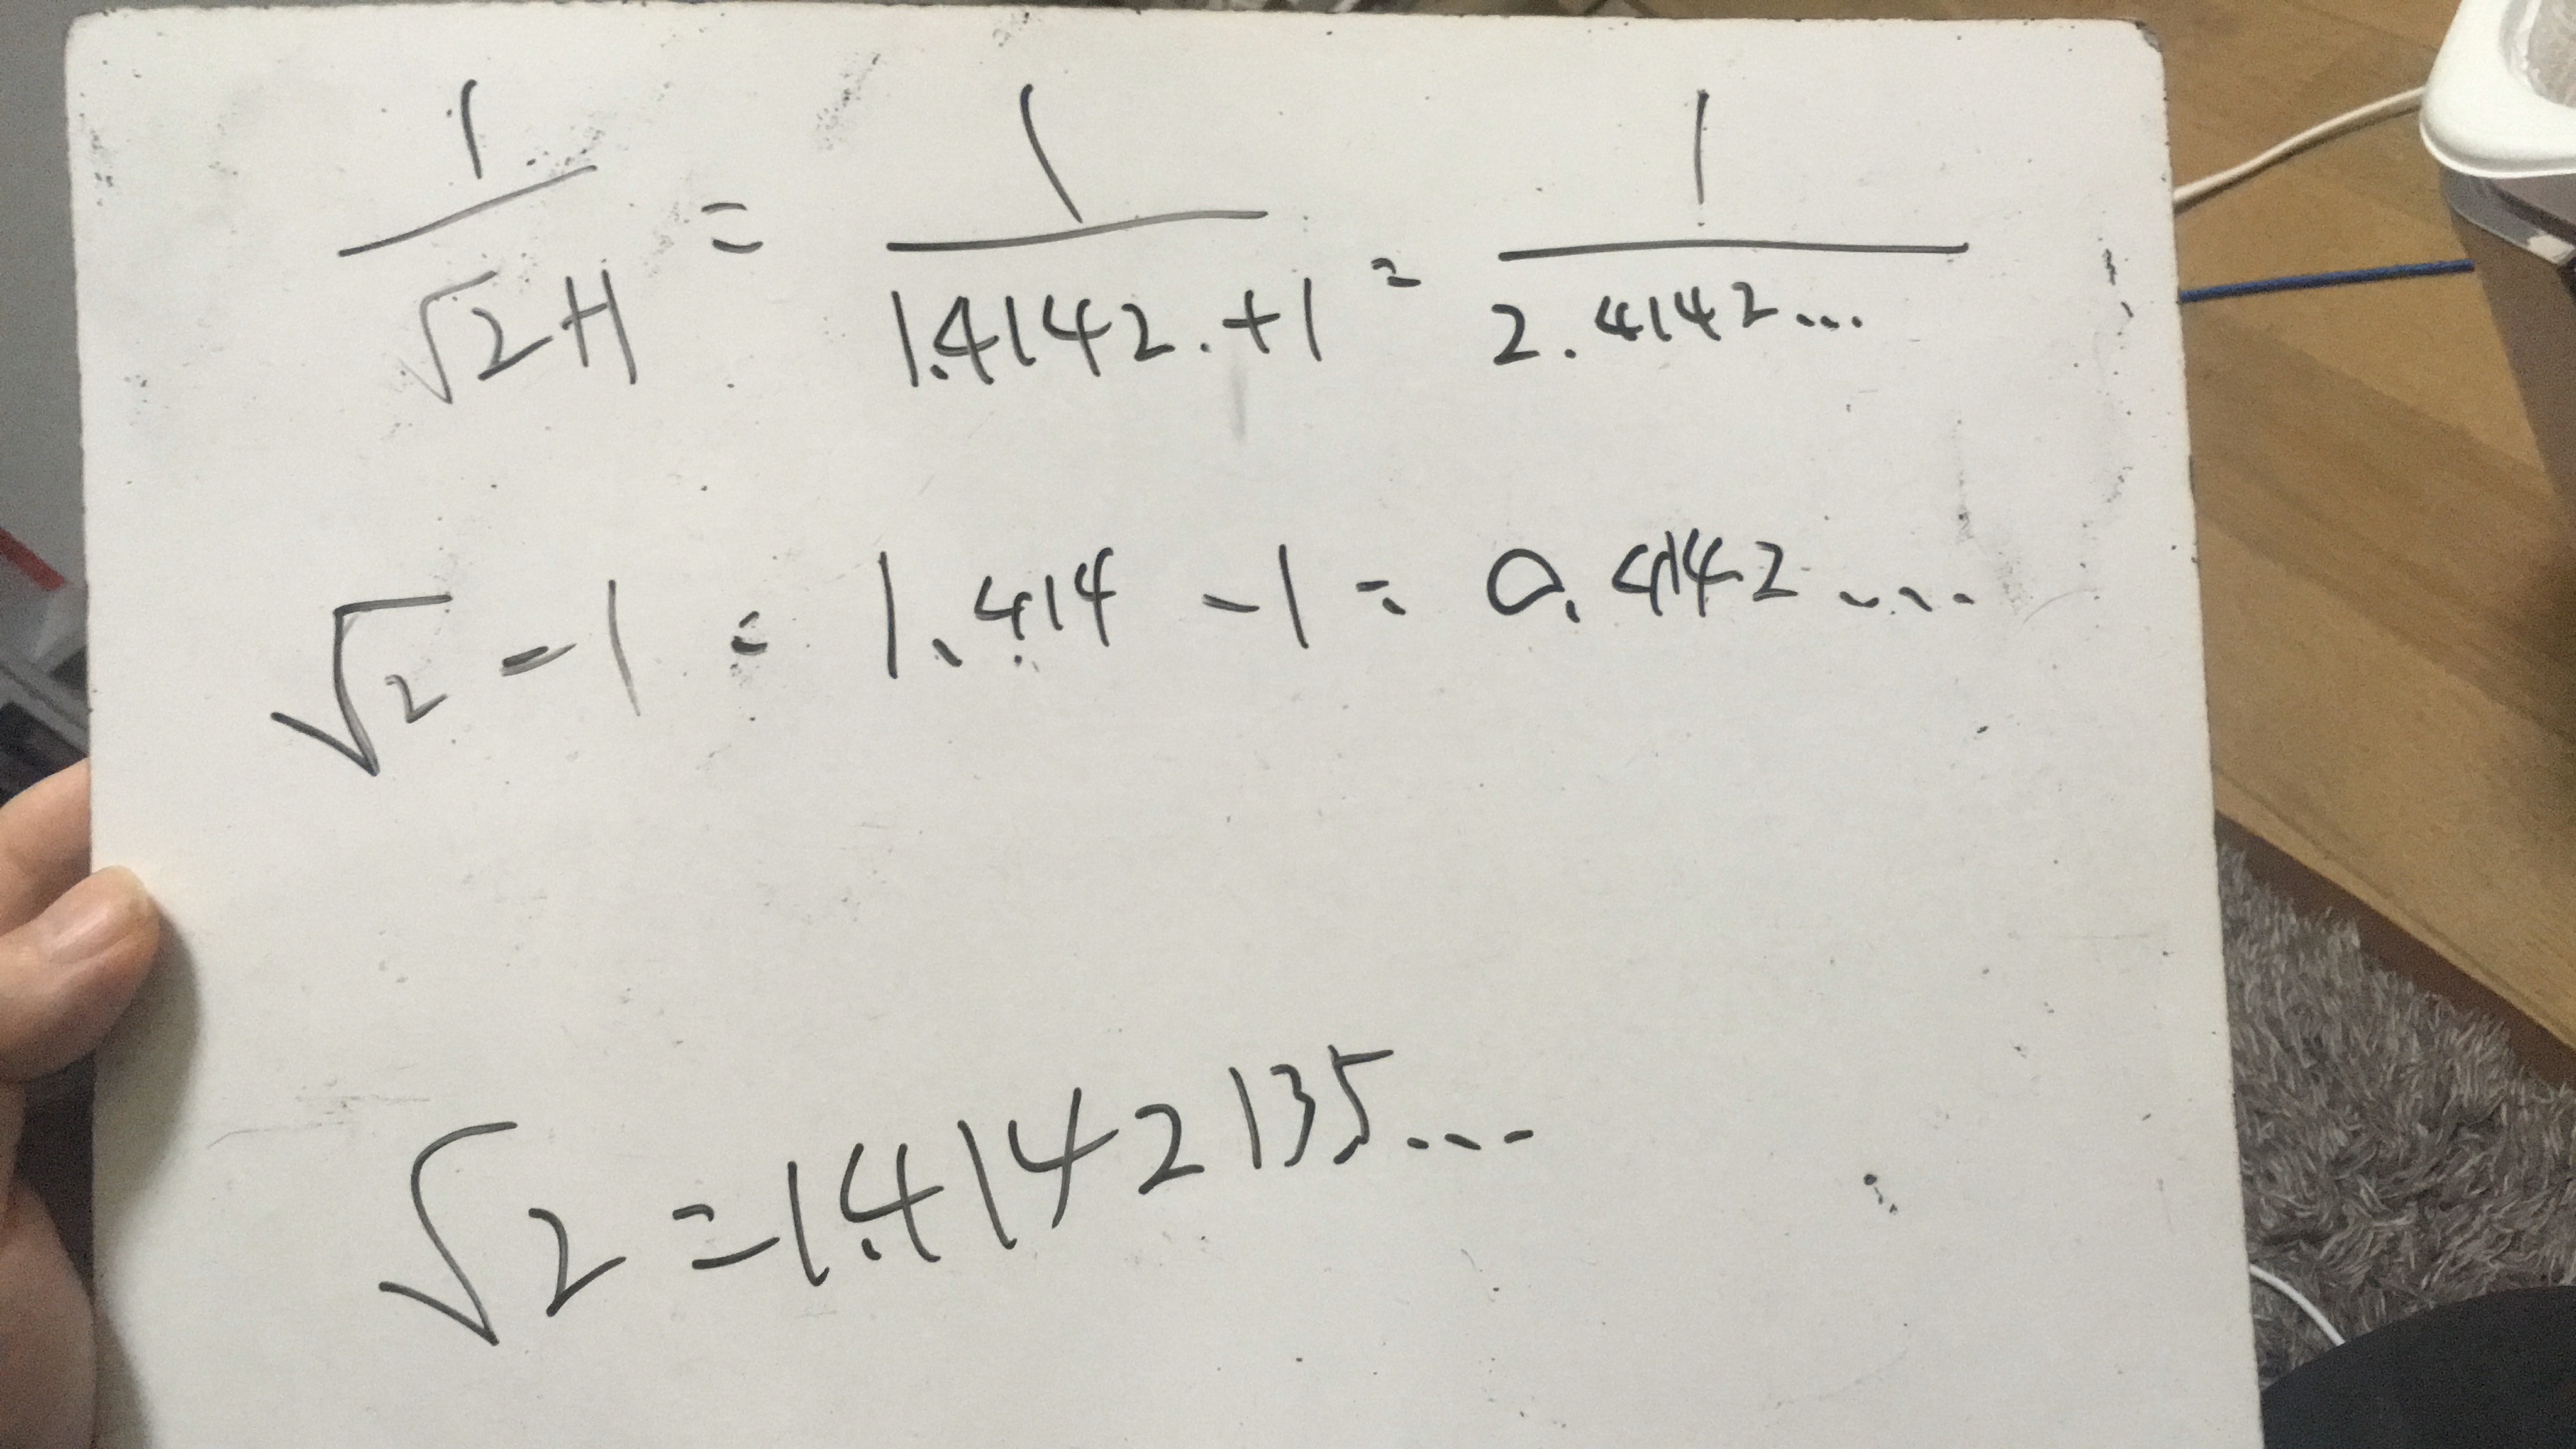 1/(√2+1) = 1/(1.4142.+1) = 1/(2.4142...)
√2 - 1 = 1.414 - 1 = 0.4142...
√2 = 1.4142135...